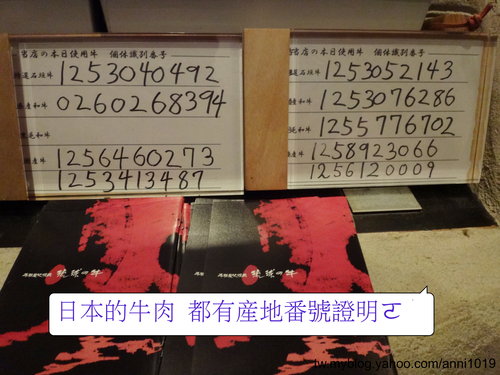 当店の本日使用牛 個体識別番号
1253040492
0260268394
1256460273
1253413487
当店の本日使用牛 個体識別番号
1253052143
1253076286
1255776702
1258923066
1256120009
琉球の牛
琉球の牛
日本的牛肉 都有産地番號證明ㄛ
tw.myblog.yahoo.com/anni1019